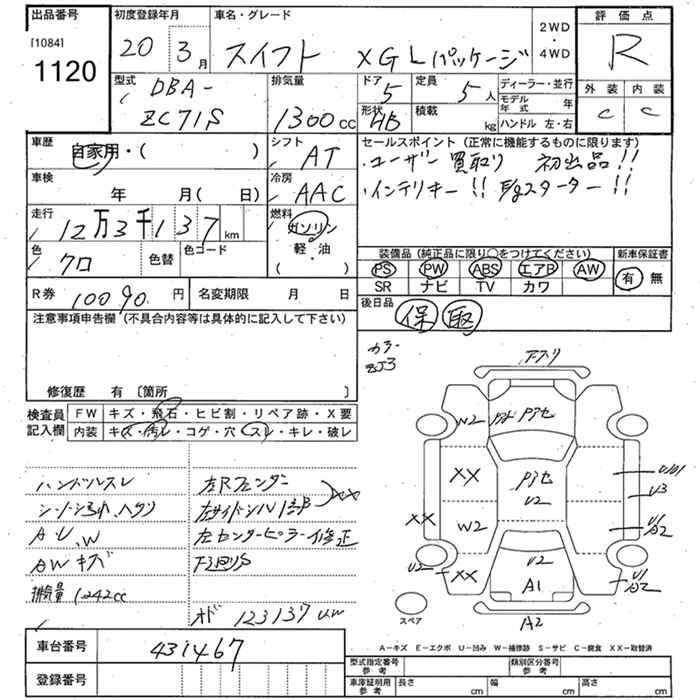 出品番号 初度登録年月 車名・グレード 2WD・4WD 評価点
[1084]
1120
20年 3月 スイフト XGLパッケージ R
型式 排気量 ドア 定員 ディーラー・並行 外装 内装
DBA-
ZC71S 1300cc 5 5人 モデル年式 年 C C
形状 積載 kg ハンドル 左・右
HB
車歴 シフト セールスポイント (正常に機能するものに限ります)
自家用・( ) AT ・ユーザー買取り 初出品!!
車検 冷房 ・インテリキー!! E/gスターター!!
年 月( 日) AAC
走行 燃料
12万3千137km ガソリン
軽・油
( )
色 色替 色コード 装備品 (純正品に限り○をつけてください) 新車保証書
クロ PS PW ABS エアB AW 有 無
SR ナビ TV カワ
R券 10090円 名変期限 月 日 後日品
保 取
注意事項申告欄 (不具合内容等は具体的に記入して下さい)
カラー
ZJ3
修復歴 有 〔箇所 〕
検査員記入欄 FW キズ・飛石・ヒビ割・リペア跡・X要
内装 キズ・汚レ・コゲ・穴・スレ・キレ・破レ
ハンドルスレ
AU、W
AWキズ
排気量 1242cc
左Rフェンダー
左サイドシル1部 XX
左センターピラー修正
下廻りS
オド 123137km
W2
XX U2 U3
XX W2 U2
U2 XX U2
A1
スペア A2
A-キズ E-エクボ U-凹み W-補修跡 S-サビ C-腐食 XX-取替済
車台番号 431467
登録番号
型式指定番号 参考 類別区分番号 参考
車庫証明用 参考 長さ cm 幅 cm 高さ cm